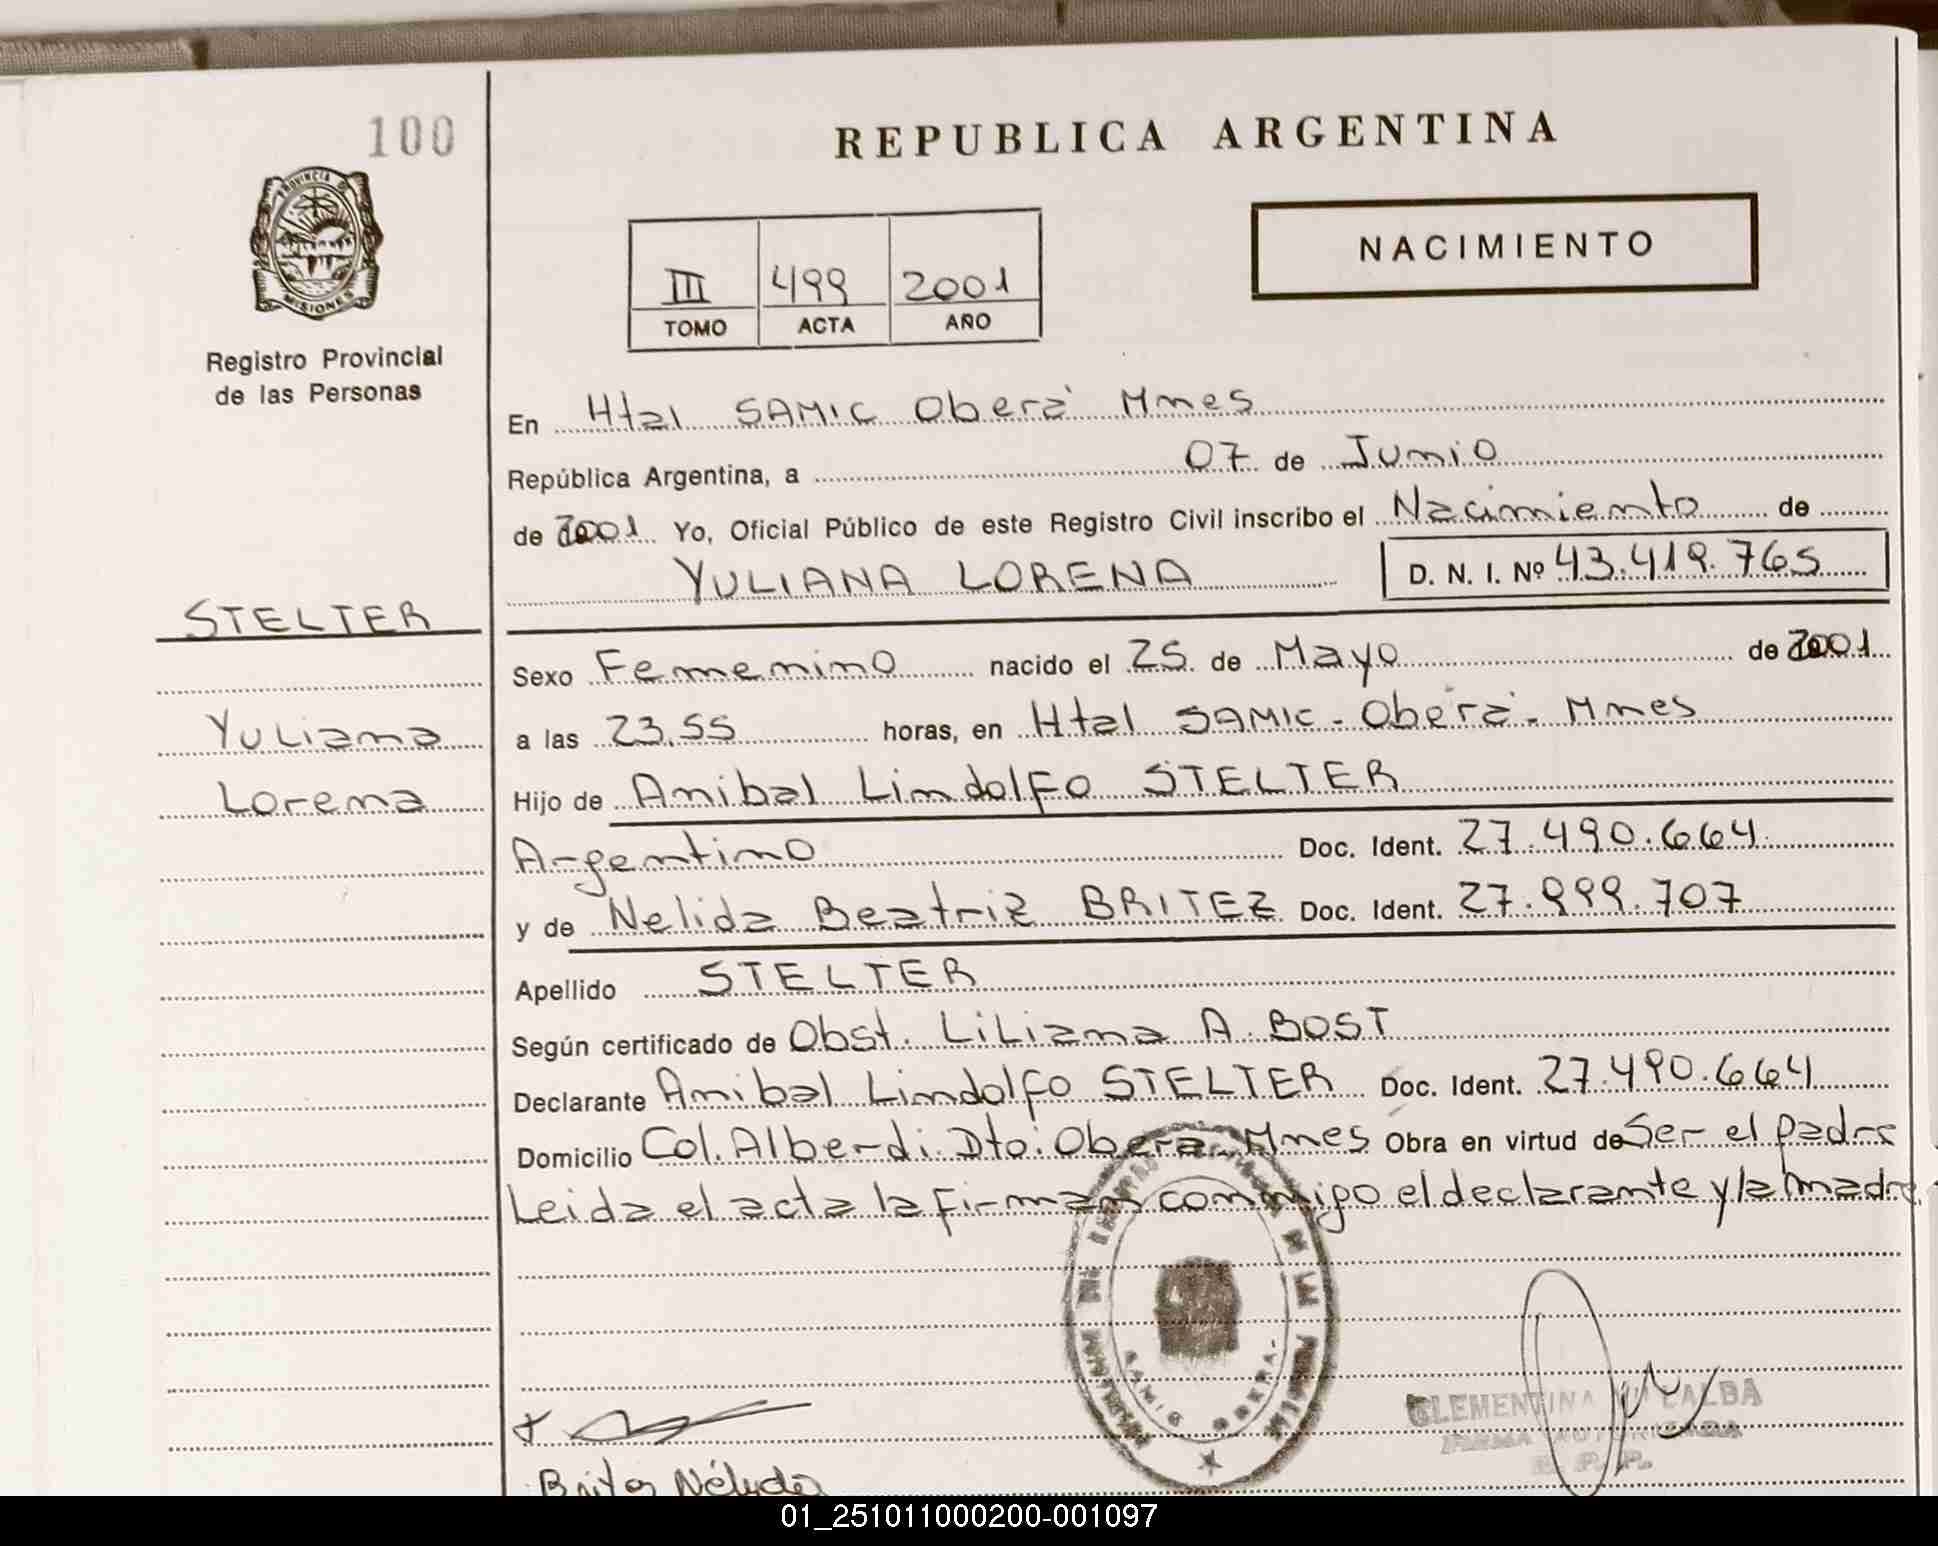 100
REPUBLICA ARGENTINA
PROVINCIA DE
MISIONES
Registro Provincial
de las Personas
III 499 2001
TOMO ACTA AÑO
NACIMIENTO
En Htal SAMIC Oberá Mnes
República Argentina, a 07 de Junio
de 2001 Yo, Oficial Público de este Registro Civil inscribo el Nacimiento de
YULIANA LORENA D. N. I. Nº 43.419.765
STELTER
Yuliana
Lorena
Sexo Femenino nacido el 25 de Mayo de 2001
a las 23.55 horas, en Htal SAMIC - Oberá - Mnes
Hijo de Anibal Lindolfo STELTER
Argentino Doc. Ident. 27.490.664
y de Nelida Beatriz BRITEZ Doc. Ident. 27.999.707
Apellido STELTER
Según certificado de Obst. Liliana A. BOST
Declarante Anibal Lindolfo STELTER Doc. Ident. 27.490.664
Domicilio Col. Alberdi. Dto. Oberá Mnes Obra en virtud de Ser el padre
Leida el acta la firman conmigo el declarante y la madre
SAMIC OBERA
CLEMENTINA VILLALBA
FIRMA AUTORIZADA
R. P. P.
Britez Nélida
01_251011000200-001097